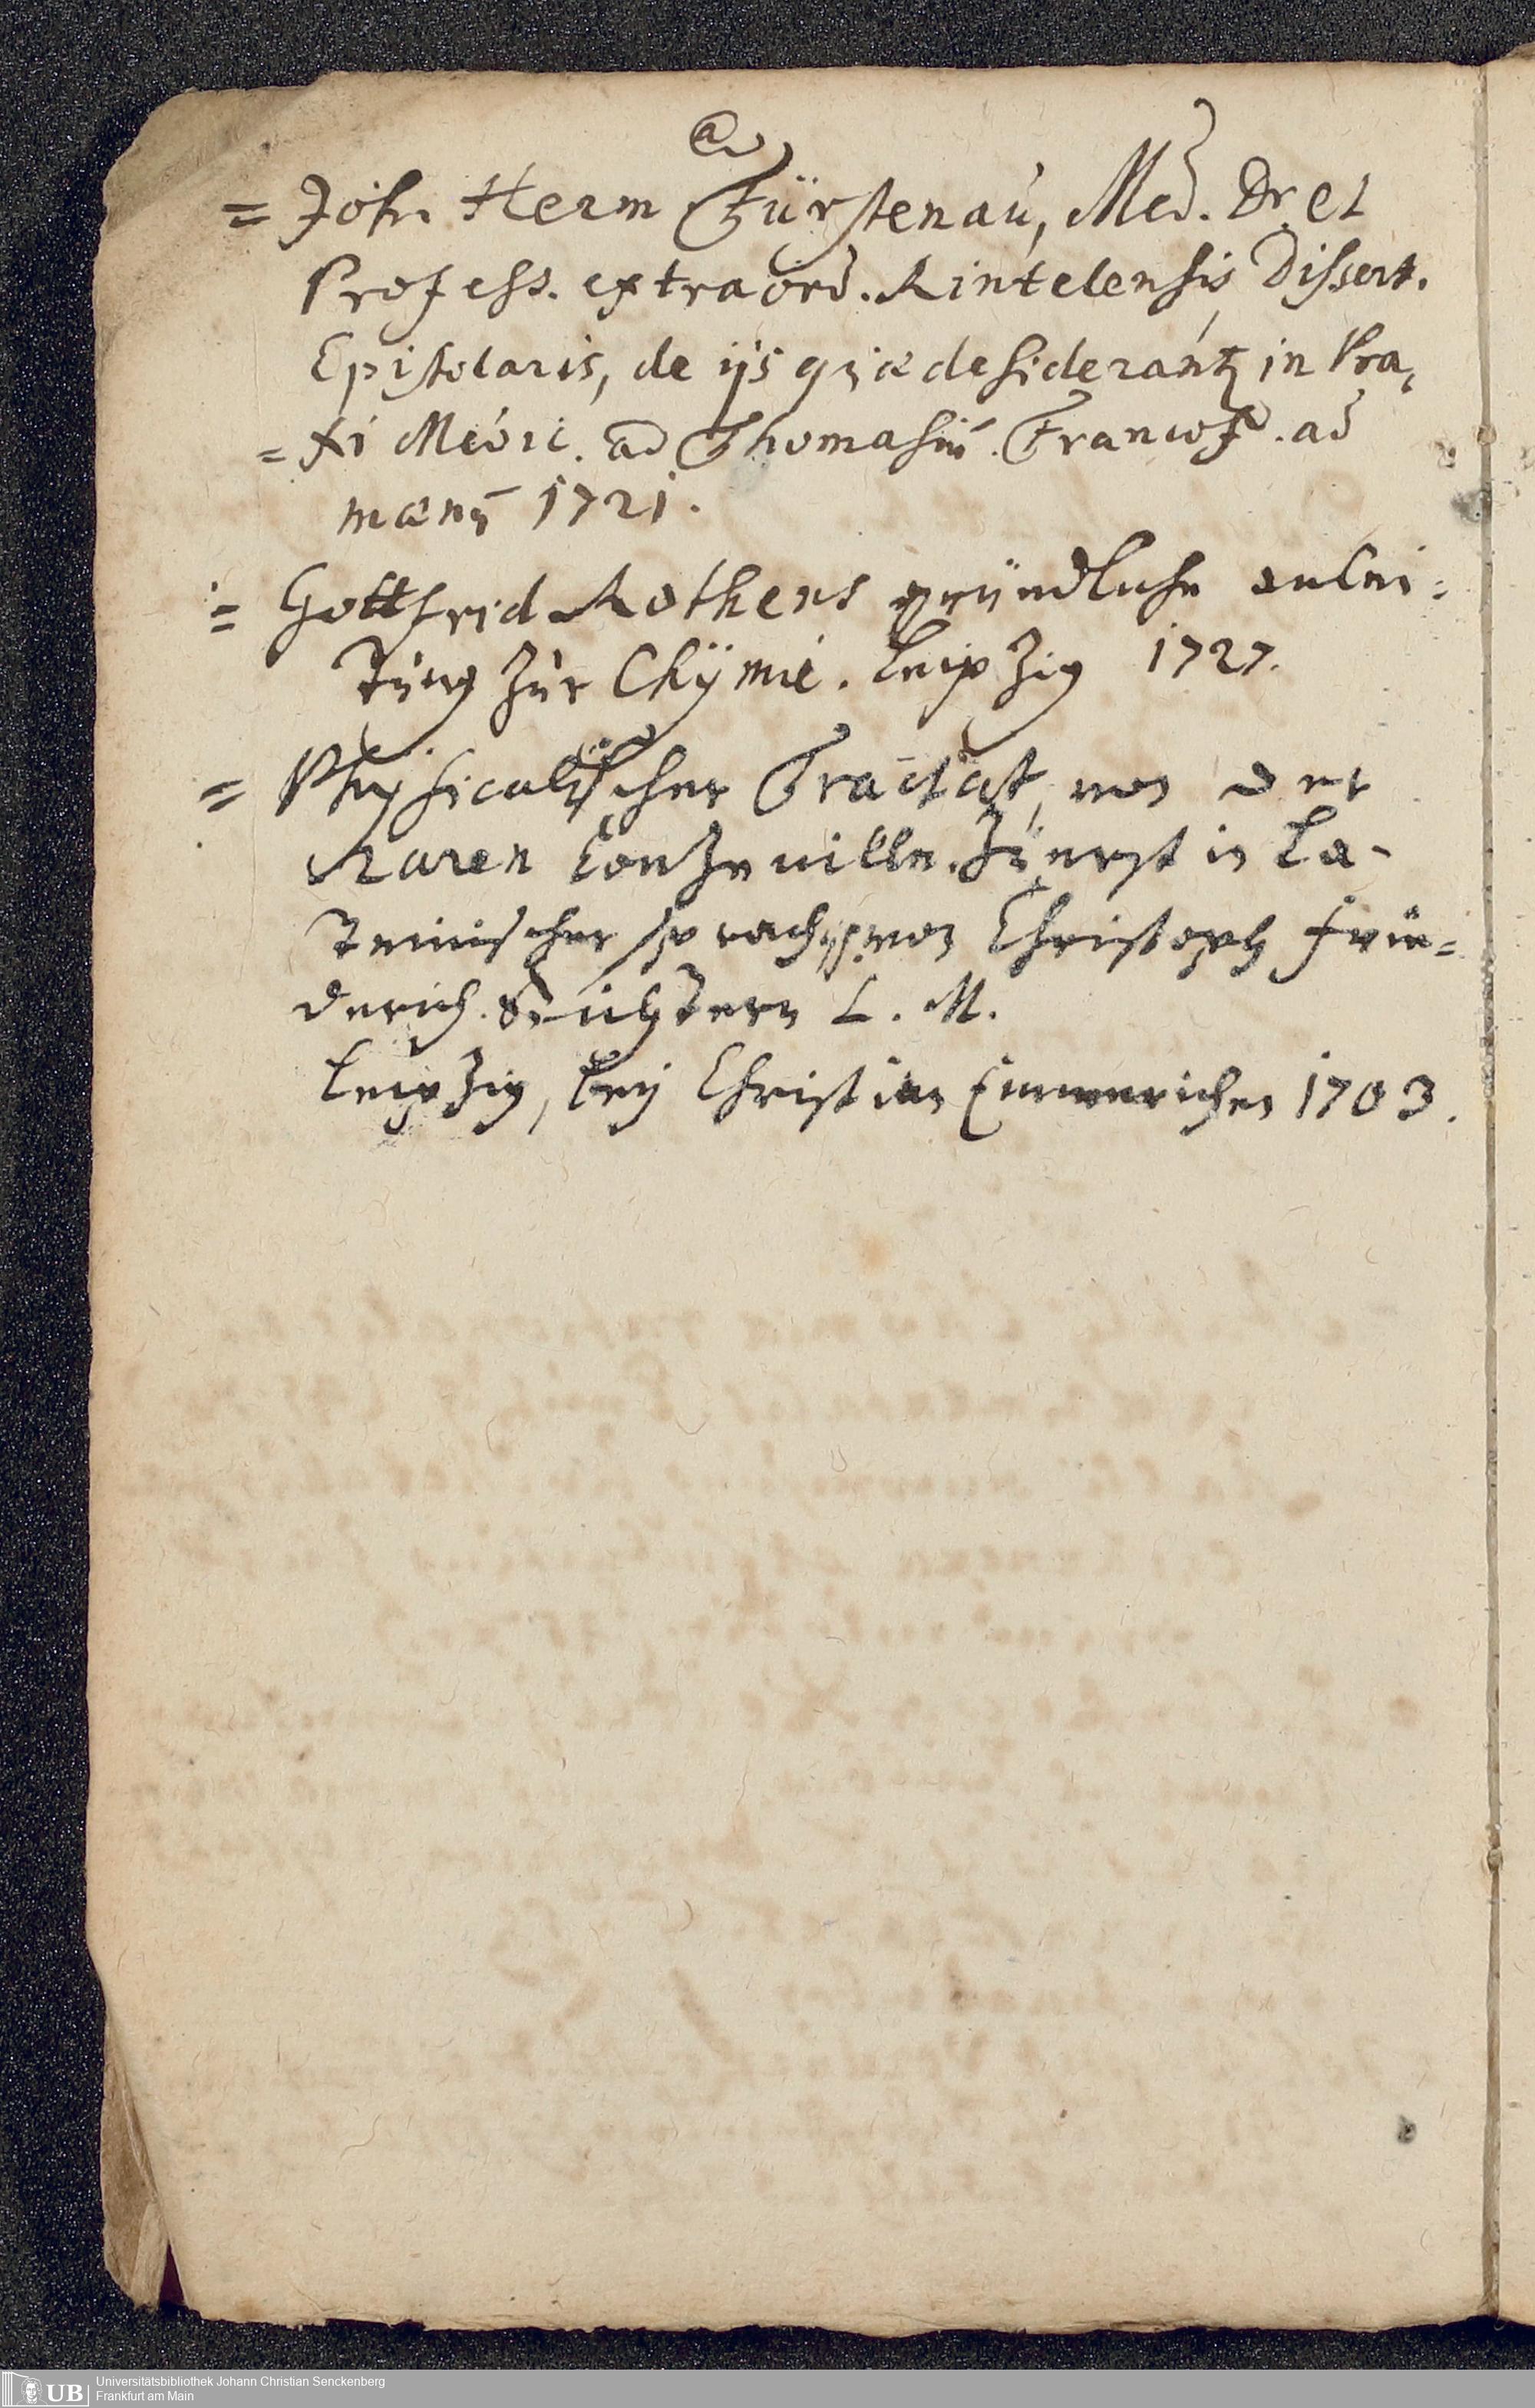 @
= Joh. Herm Fürstenau, Med. Dr. et
Profess. extraord. Rintelensis, Dissert.
Epistolaris, de ijs quæ desiderant in Pra,
= xi Medic. ad Thomasiū. Francof. ad
mænū 1721.
= Gottfrid Rothens gründliche anlei=
tung zur Chÿmie. Leipzig 1727.
= Physicalischer Tractat, von der
Raren Contrerville. Zuerst in La-
teinischer sprache, von Christoph Frie=
derich Richtern L. M.
Leipzig, beÿ Christian Emmerichen 1703.
Universitätsbibliothek Johann Christian Senckenberg
Frankfurt am Main
UB